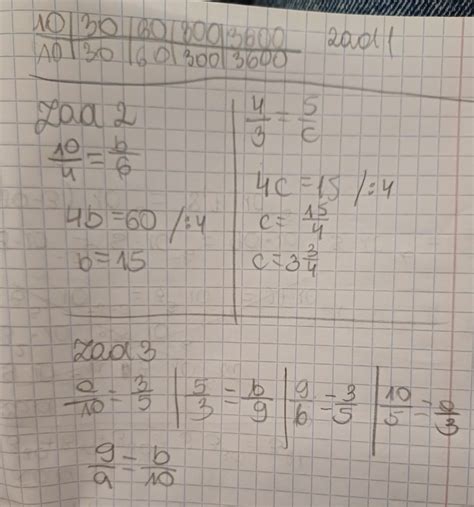 10 | 30 | 60 | 300 | 3600 zad 1
10 | 30 | 60 | 300 | 3600
Zad 2
10/4 = b/6
4b = 60 /:4
b = 15
4/3 = 5/c
4c = 15 /:4
c = 15/4
c = 3 3/4
Zad 3
a/10 = 3/5 | 5/3 = b/9 | 9/b = 3/5 | 10/5 = a/3
9/a = b/10